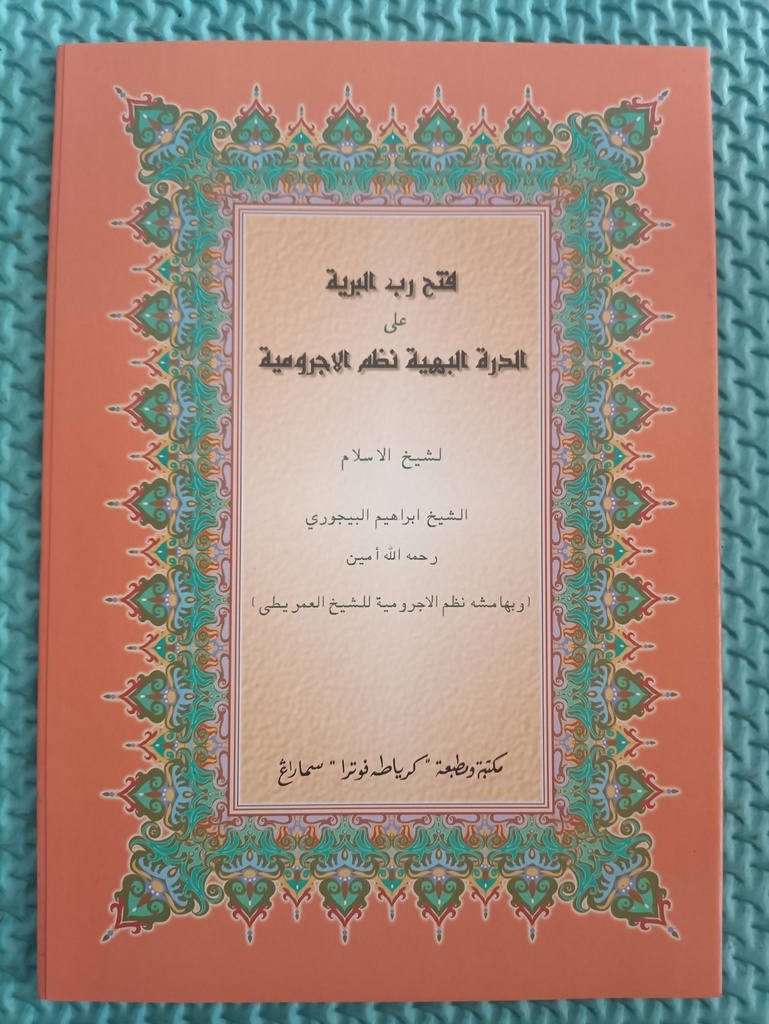 فتح رب البرية
على
الدرة البهية نظم الاجرومية
لشيخ الاسلام
الشيخ ابراهيم البيجوري
رحمه الله أمين
(وبهامشه نظم الاجرومية للشيخ العمريطى)
مكتبة ومطبعة "كرياطه فوترا" سماراڠ